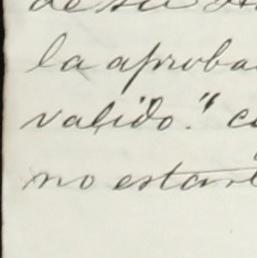 de su
la aproba
valido." c
no estar